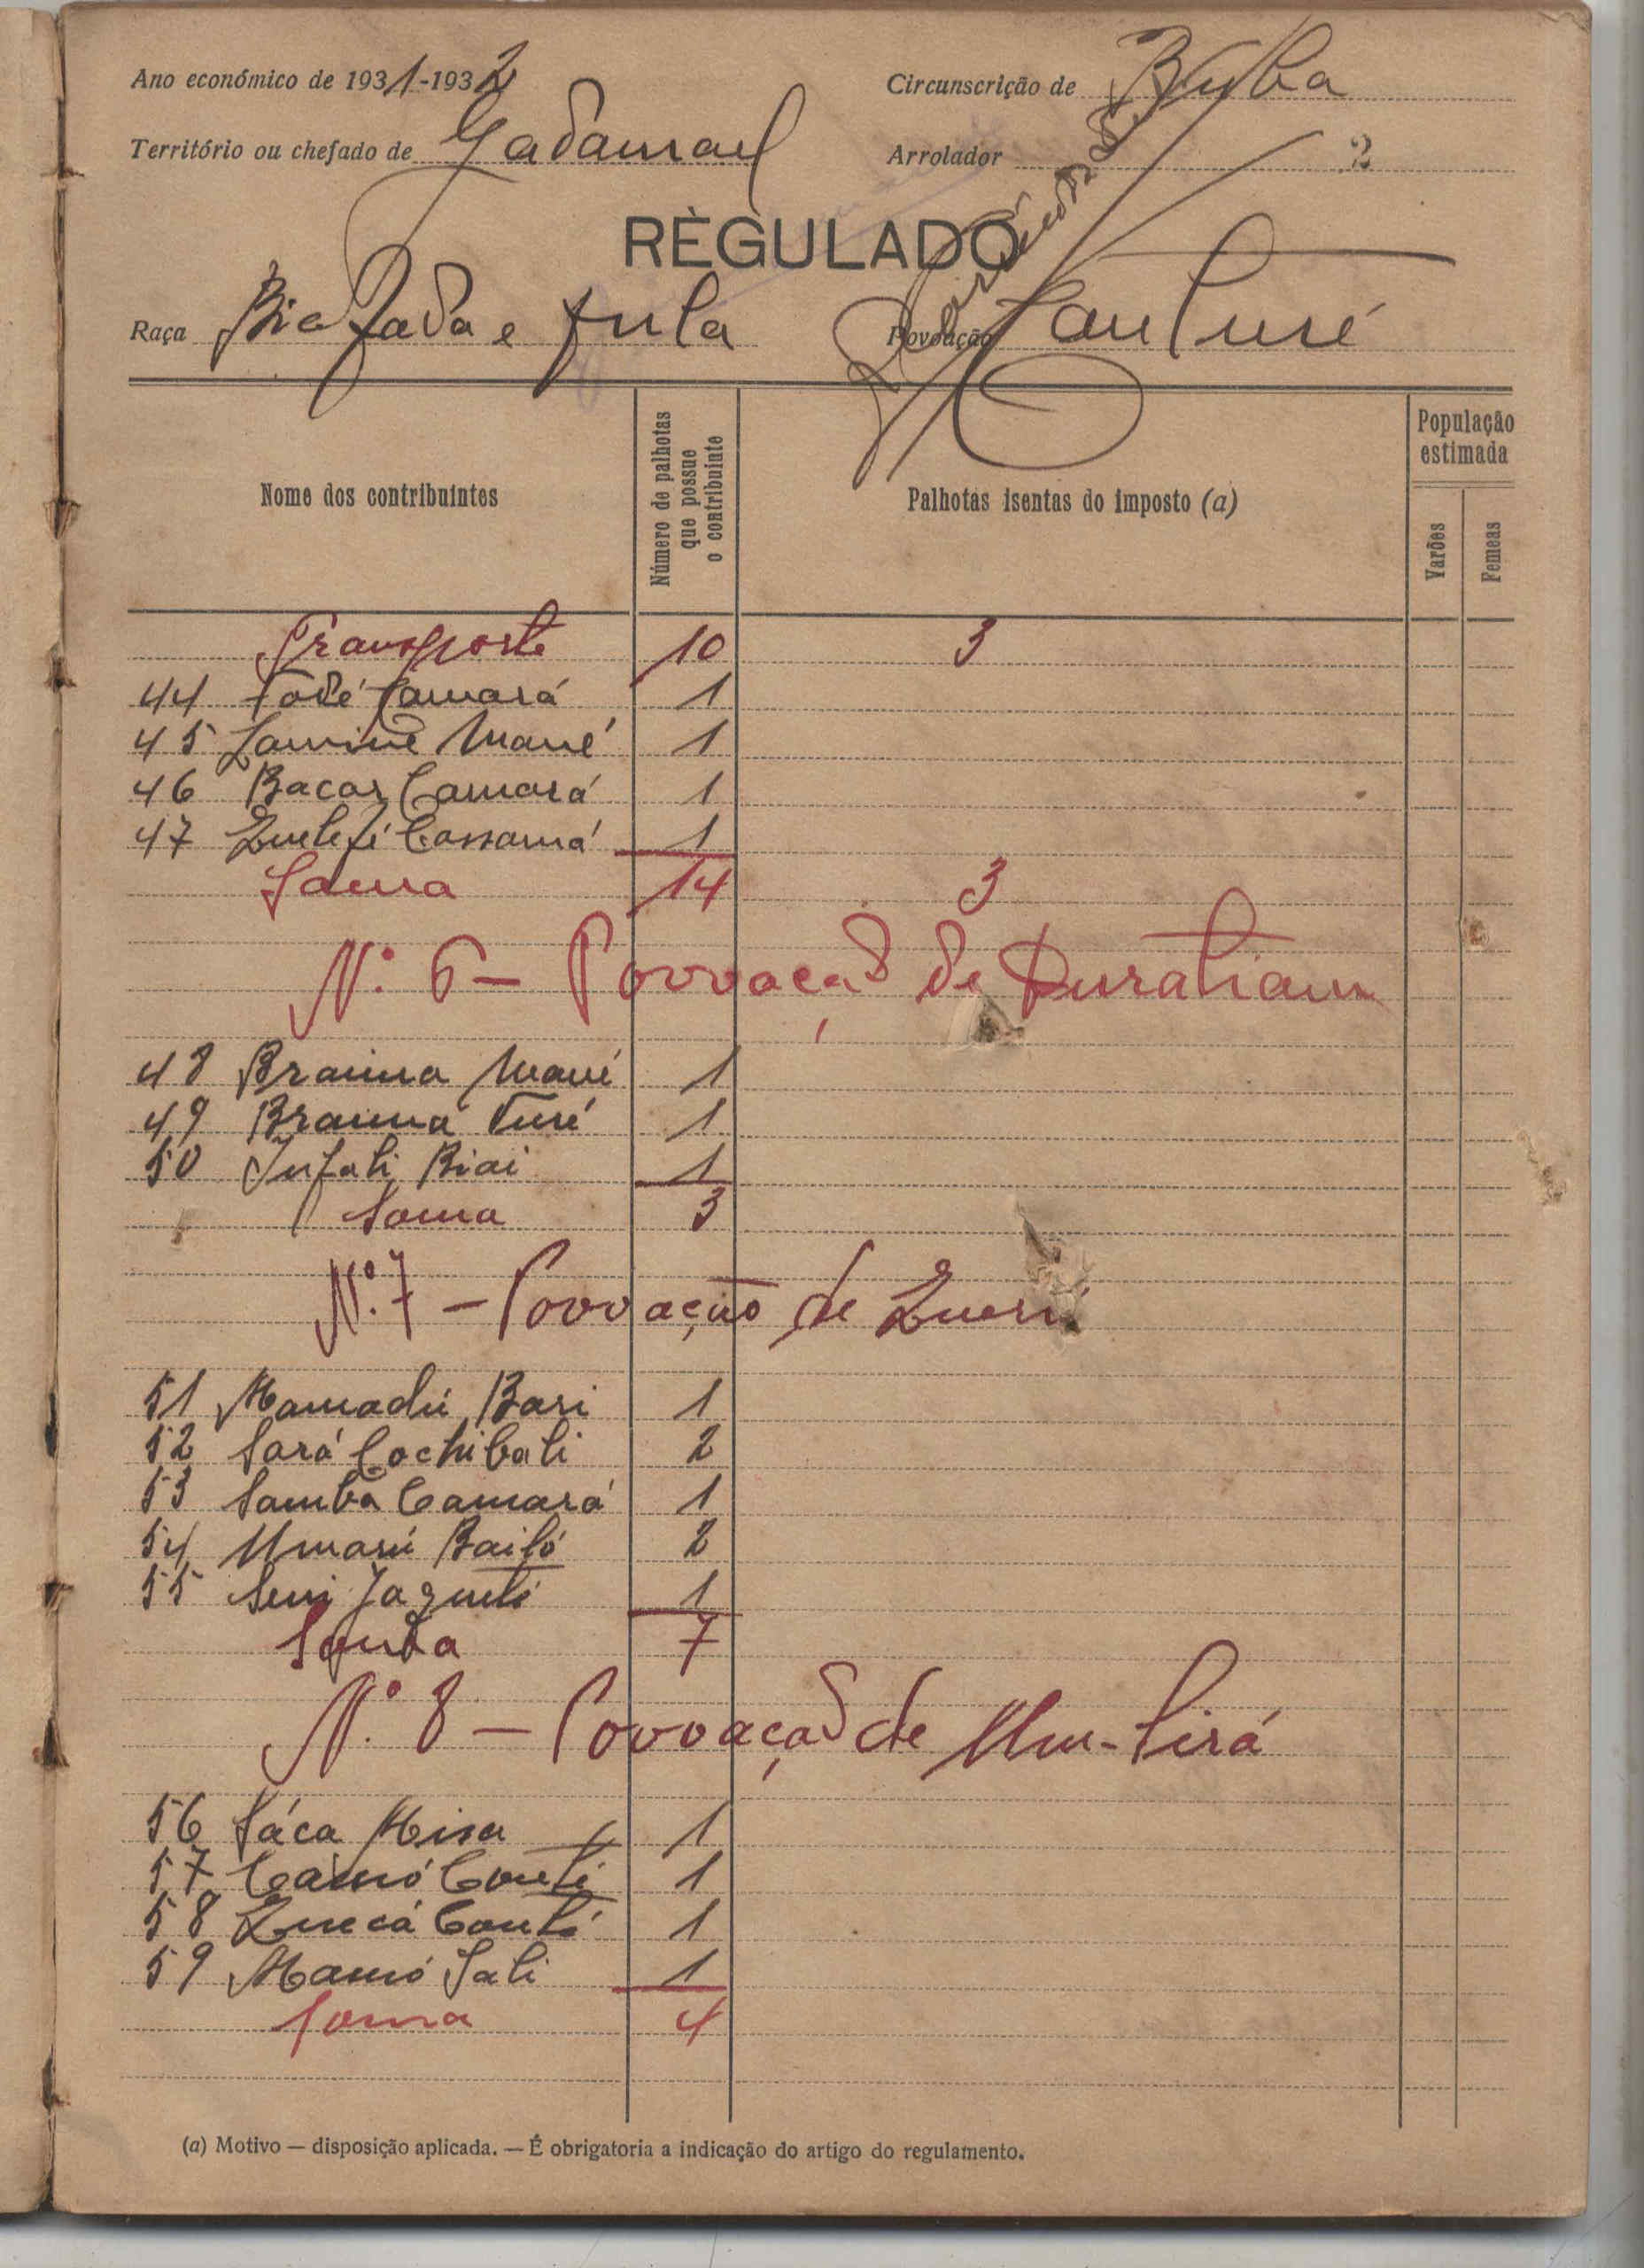 Ano económico de 1931-1932
Circunscrição de Buba
Território ou chefado de Gadamael
Arrolador 2
REGULADO
Raça Biafada e fula
Povoação Canturé
Nome dos contribuintes
Número de palhotas que possue o contribuinte
Palhotas isentas do imposto (a)
População estimada
Varões
Femeas
Transporte 10 3
44 Camará 1
45 Lamine Mané 1
46 Bacar Camará 1
47 Quelefé Cassamá 1
Soma 14 3
N.º 6 — Povoação de
48 Braima Mané 1
49 Braima Turé 1
50 Infali Biai 1
Soma 3
N.º 7 — Povoação de
51 Mamadú Bari 1
52 Sará 2
53 Samba Camará 1
54 Umarú Bailó 2
55 1
Soma 7
N.º 8 — Povoação de
56 1
57 1
58 Quecá Conté 1
59 1
Soma 4
(a) Motivo — disposição aplicada. — É obrigatoria a indicação do artigo do regulamento.